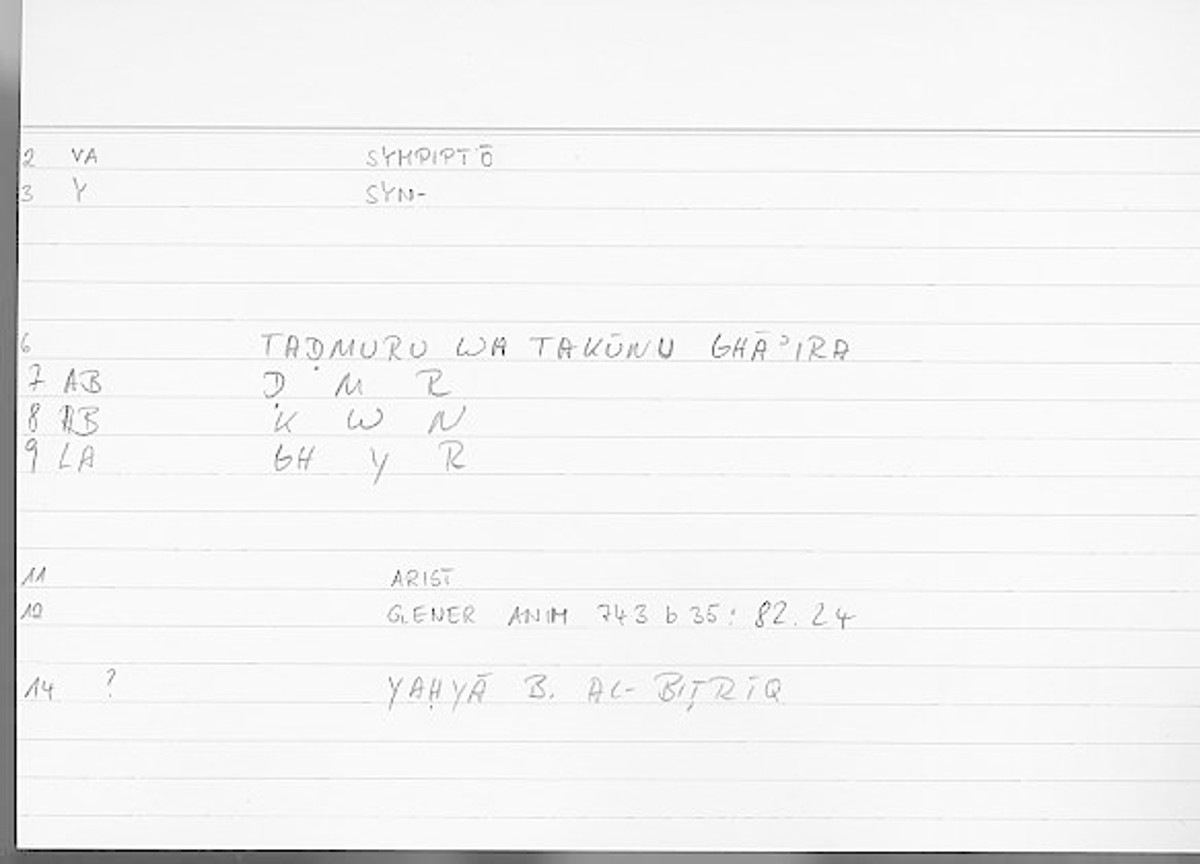 2 VA SYMPIPTŌ
3 Y SYN-
6 TAḌMURU WA TAKŪNU GHĀʾIRA
7 AB Ḍ M R
8 AB K W N
9 LA GH Y R
11 ARIST
12 GENER ANIM 743 b 35: 82.24
14 ? YAḤYĀ B. AL-BIṬRĪQ